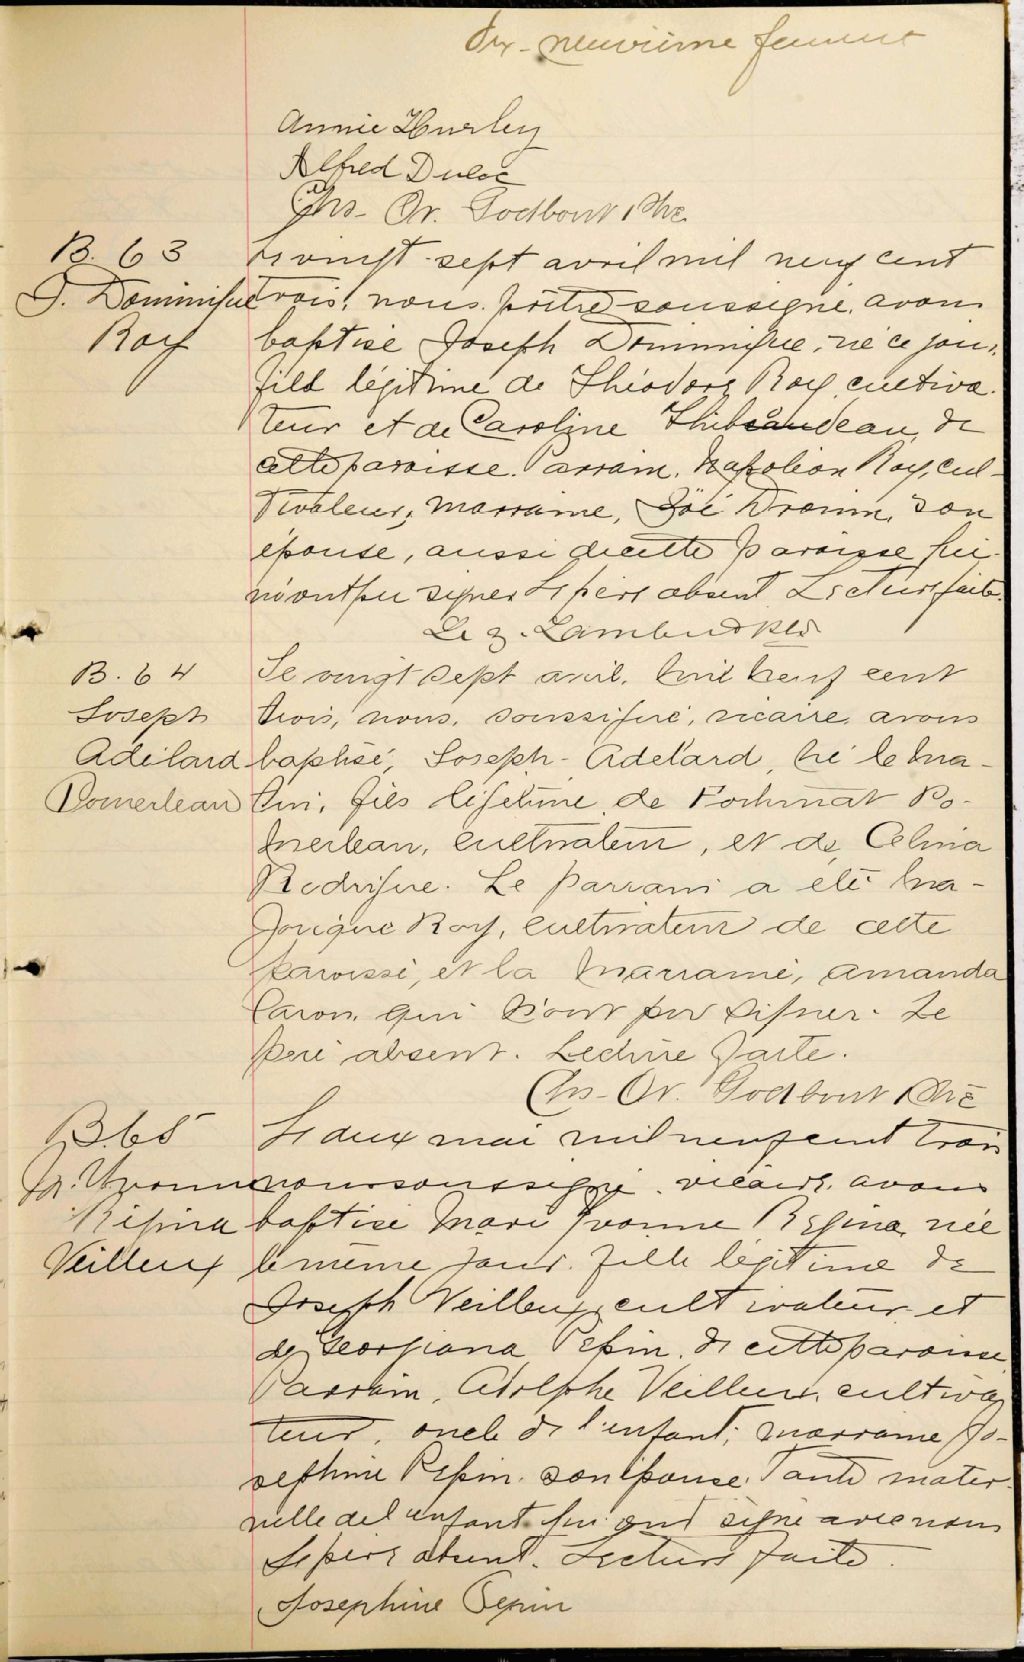 dix-neuvième feuillet
Annie Hurley
Alfred Duloc
Chs. Or. Godbout Ptre
B. 63
J. Dominique
Roy
Le vingt-sept avril mil neuf cent
trois, nous, prêtre soussigné, avons
baptisé Joseph Dominique, né ce jour,
fils légitime de Théodore Roy, cultiva-
teur et de Caroline Thibaudeau, de
cette paroisse. Parrain, Napoléon Roy, cul-
tivateur; marraine, Zoé Drouin, son
épouse, aussi de cette paroisse qui
n'ont pu signer. Le père absent. Lecture faite.
B. 64
Joseph
Adélard
Pomerleau
Le vingt sept avril, mil neuf cent
trois, nous, soussigné, vicaire, avons
baptisé, Joseph-Adélard, né le ma-
tin, fils légitime de Fortunat Po-
merleau, cultivateur, et de Célina
Rodrigue. Le parrain a été Ma-
jorique Roy, cultivateur de cette
paroisse, et la marraine, Amanda
Caron, qui n'ont pu signer. Le
père absent. Lecture faite.
Chs-Or. Godbout Ptre
B. 65
M. Yvonne
Régina
Veilleux
Le deux mai mil neuf cent trois
nous soussigné, vicaire, avons
baptisé Marie Yvonne Régina, née
le même jour, fille légitime de
Joseph Veilleux, cultivateur et
de Georgiana Pepin, de cette paroisse.
Parrain, Adolphe Veilleux, cultiva
teur, oncle de l'enfant; marraine Jo-
sephine Pepin, son épouse, tante mater-
nelle de l'enfant qui ont signé avec nous
Le père absent. Lecture faite.
Josephine Pepin